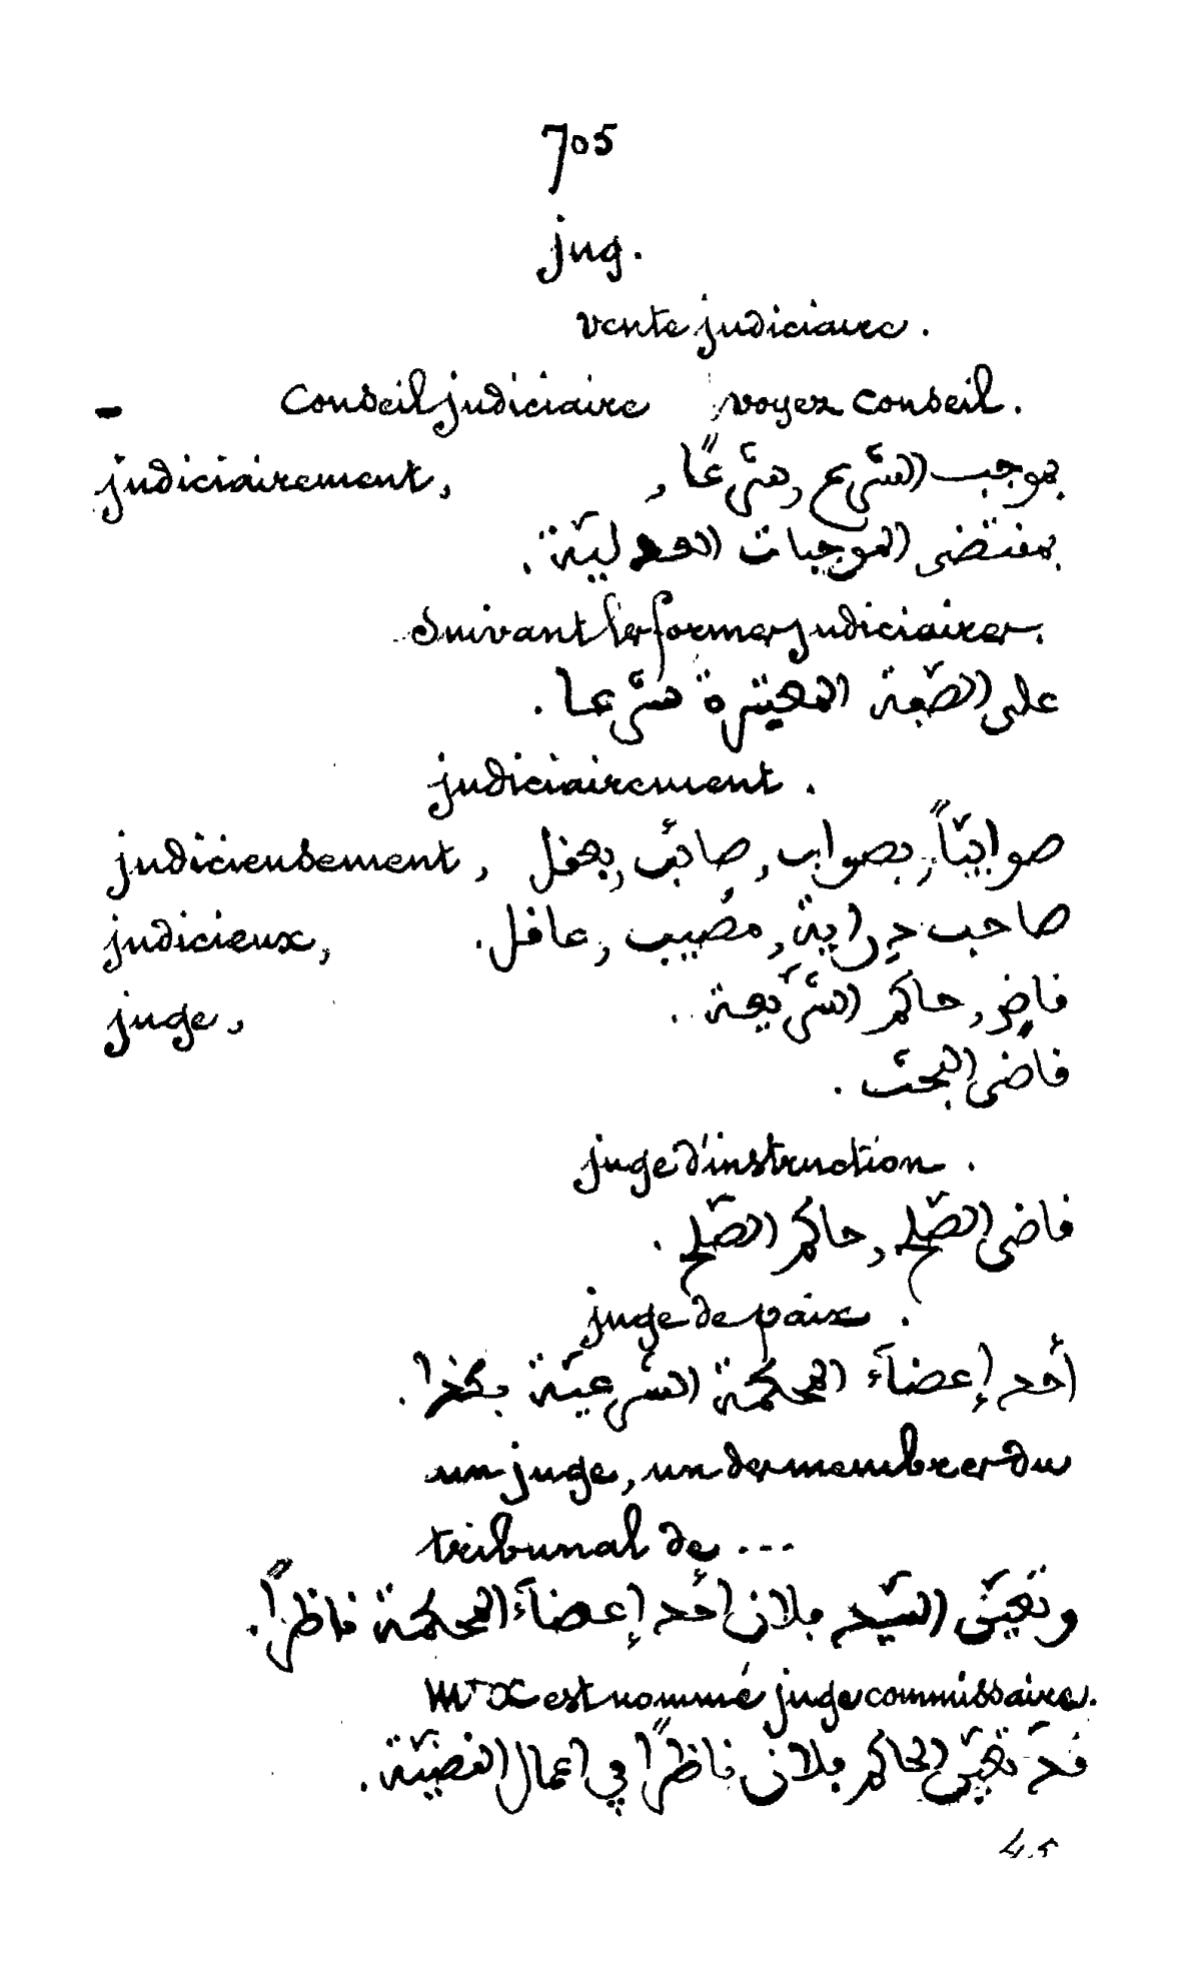 705
jug.
vente judiciaire.
— Conseil judiciaire voyez conseil.
judiciairement, بموجب الشّرع, شرعًا,
بمقتضى الموجبات العدليّة.
Suivant les formes judiciaires.
على الصّبغة المعتبرة شرعا.
judiciairement.
judicieusement, صوابيًّا, بصواب, صائب, بعقل
judicieux, صاحب دراية, مصيب, عاقل.
juge, قاضٍ, حاكم الشّريعة.
قاضى البحث.
juge d'instruction.
قاضى الصّلح, حاكم الصّلح.
juge de paix.
أحد إعضآء المحكمة الشّرعيّة بكذا.
un juge, un des membres du
tribunal de ...
وتعيّن السّيد فلان أحد إعضآء المحكمة ناظرًا.
Mr X est nommé juge commissaire.
قد تعيّن الحاكم فلان ناظرًا في اعمال القضيّة.
45